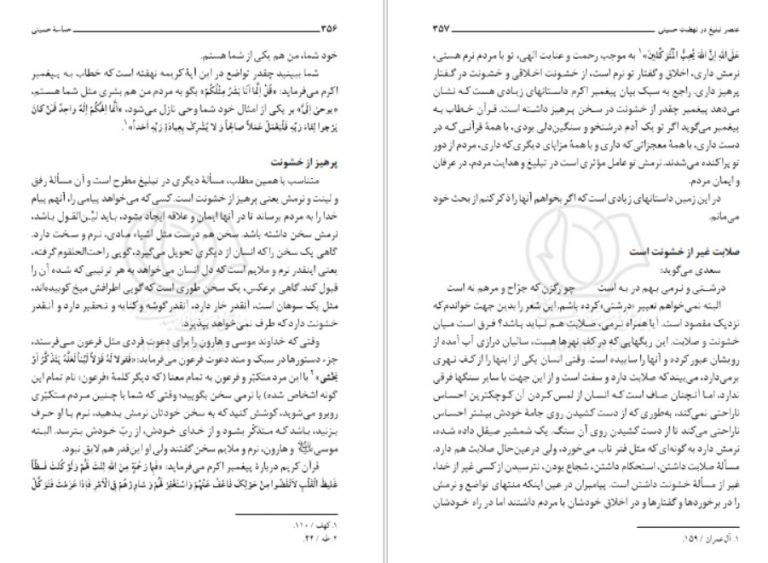 ۳۵۶ حماسهٔ حسینی
خود شما، من هم یکی از شما هستم.
شما ببینید چقدر تواضع در این آیهٔ کریمه نهفته است که خطاب به پیغمبر
اکرم می‌فرماید: «قُلْ اِنَّما اَنَا بَشَرٌ مِثْلُكُمْ» بگو به مردم من هم بشری مثل شما هستم،
«يوحىٰ اِلَىَّ» بر یکی از امثال خود شما وحی نازل می‌شود، «اَنَّما اِلٰهُكُمْ اِلٰهٌ واحِدٌ فَمَنْ كانَ
يَرْجوا لِقاءَ رَبِّهِ فَلْيَعْمَلْ عَمَلاً صالِحاً وَ لا يُشْرِكْ بِعِبادَةِ رَبِّهِ اَحَداً»۱.
پرهیز از خشونت
متناسب با همین مطلب، مسألهٔ دیگری در تبلیغ مطرح است و آن مسألهٔ رفق
و لینت و نرمش یعنی پرهیز از خشونت است. کسی که می‌خواهد پیامی را، آنهم پیام
خدا را به مردم برساند تا در آنها ایمان و علاقه ایجاد بشود، باید لیّن‌القول باشد،
نرمش سخن داشته باشد. سخن هم درست مثل اشیاء مادی، نرم و سخت دارد.
گاهی یک سخن را که انسان از دیگری تحویل می‌گیرد، گویی راحت‌الحلقوم گرفته،
یعنی اینقدر نرم و ملایم است که دل انسان می‌خواهد به هر ترتیبی که شده آن را
قبول کند. گاهی برعکس، یک سخن طوری است که گویی اطرافش میخ کوبیده‌اند،
مثل یک سوهان است، آنقدر خار دارد، آنقدر گوشه و کنایه و تحقیر دارد و آنقدر
خشونت دارد که طرف نمی‌خواهد بپذیرد.
وقتی که خداوند موسی و هارون را برای دعوت فردی مثل فرعون می‌فرستد،
جزء دستورها در سبک و متد دعوت فرعون می‌فرماید: «فَقولا لَهُ قَوْلاً لَيِّناً لَعَلَّهُ يَتَذَكَّرُ اَوْ
يَخْشىٰ»۲ با این مرد متکبّر و فرعون به تمام معنا (که دیگر کلمهٔ «فرعون» نام تمام این
گونه اشخاص شده) با نرمی سخن بگویید؛ وقتی که شما با چنین مرد متکبّری
روبرو می‌شوید، کوشش کنید که به سخن خودتان نرمش بدهید، نرم با او حرف
بزنید، باشد که متذکّر بشود و از خدای خودش، از ربّ خودش بترسد. البته
موسی علیه‌السلام و هارون، نرم و ملایم سخن گفتند ولی او این‌قدر هم لایق نبود.
قرآن کریم دربارهٔ پیغمبر اکرم می‌فرماید: «فَبِما رَحْمَةٍ مِنَ اللهِ لِنْتَ لَهُمْ وَ لَوْ كُنْتَ فَظّاً
غَليظَ الْقَلْبِ لَانْفَضّوا مِنْ حَوْلِكَ فَاعْفُ عَنْهُمْ وَ اسْتَغْفِرْ لَهُمْ وَ شاوِرْهُمْ فِى الْاَمْرِ فَاِذا عَزَمْتَ فَتَوَكَّلْ
۱. کهف / ۱۱۰.
۲. طه / ۴۴.
عنصر تبلیغ در نهضت حسینی ۳۵۷
عَلَى اللهِ اِنَّ اللهَ يُحِبُّ الْمُتَوَكِّلينَ»۱ به موجب رحمت و عنایت الهی، تو با مردم نرم هستی،
نرمش داری، اخلاق و گفتار تو نرم است، از خشونت اخلاقی و خشونت در گفتار
پرهیز داری. راجع به سبک بیان پیغمبر اکرم داستانهای زیادی هست که نشان
می‌دهد پیغمبر چقدر از خشونت در سخن پرهیز داشته است. قرآن خطاب به
پیغمبر می‌گوید اگر تو یک آدم درشتخو و سنگین‌دلی بودی، با همهٔ قرآنی که در
دست داری، با همهٔ معجزاتی که داری و با همهٔ مزایای دیگری که داری، مردم از دور
تو پراکنده می‌شدند. نرمش تو عامل مؤثری است در تبلیغ و هدایت مردم، در عرفان
و ایمان مردم.
در این زمین داستانهای زیادی است که اگر بخواهم آنها را ذکر کنم از بحث خود
می‌مانم.
صلابت غیر از خشونت است
سعدی می‌گوید:
درشتی و نرمی بهم در به است چو رگزن که جرّاح و مرهم نه است
البته نمی‌خواهم تعبیر «درشتی» کرده باشم، این شعر را بدین جهت خواندم که
نزدیک مقصود است. آیا همراه نرمی، صلابت هم نباید باشد؟ فرق است میان
خشونت و صلابت. این ریگهایی که در کف نهرها هست، سالیان درازی آب آمده از
رویشان عبور کرده و آنها را ساییده است. وقتی انسان یکی از اینها را از کف نهری
برمی‌دارد، می‌بیند که صلابت دارد و سفت است و از این جهت با سایر سنگها فرقی
ندارد، اما آنچنان صاف است که انسان از لمس کردن آن کوچکترین احساس
ناراحتی نمی‌کند، به‌طوری که از دست کشیدن روی جامهٔ خودش بیشتر احساس
ناراحتی می‌کند تا از دست کشیدن روی آن سنگ. یک شمشیر صیقل داده شده،
نرمش دارد به گونه‌ای که مثل فنر تاب می‌خورد، ولی در عین حال صلابت هم دارد.
مسألهٔ صلابت داشتن، استحکام داشتن، شجاع بودن، نترسیدن از کسی غیر از خدا،
غیر از مسألهٔ خشونت داشتن است. پیامبران در عین اینکه منتهای تواضع و نرمش
را در برخوردها و گفتارها و در اخلاق خودشان با مردم داشتند اما در راه خودشان
۱. آل عمران / ۱۵۹.